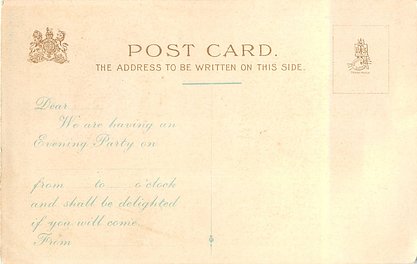 POST CARD.
THE ADDRESS TO BE WRITTEN ON THIS SIDE.
Dear
We are having an
Evening Party on
from to o'clock
and shall be delighted
if you will come.
From